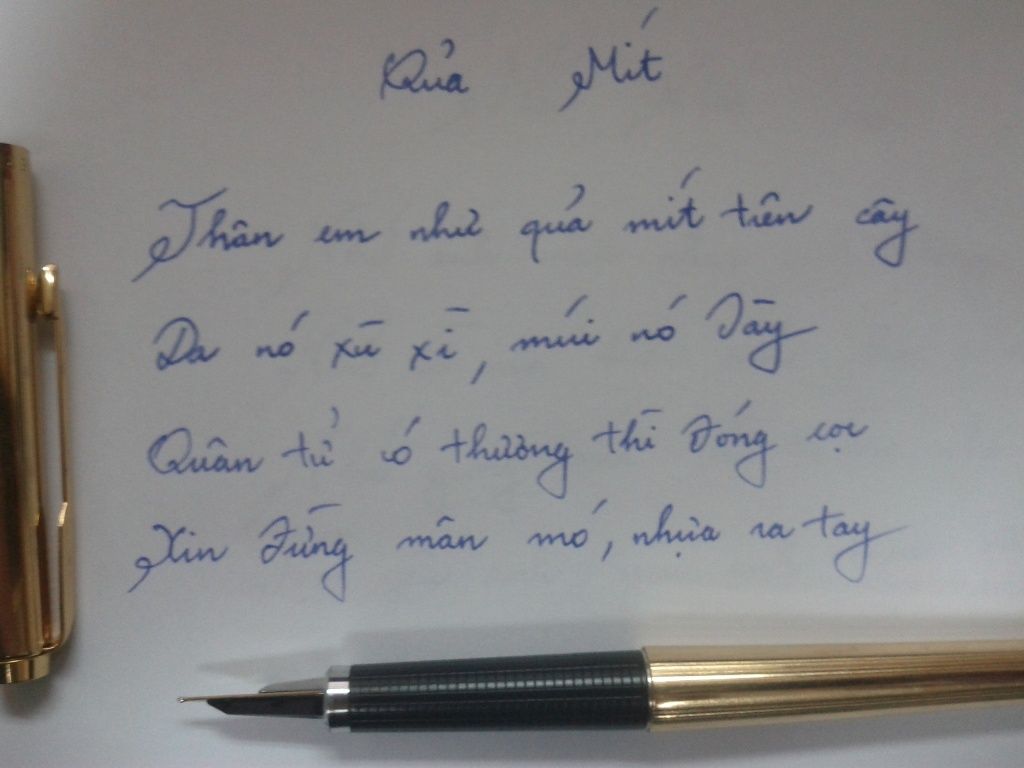 Quả Mít
Thân em như quả mít trên cây
Da nó xù xì, múi nó dày
Quân tử có thương thì đóng cọc
Xin đừng mân mó, nhựa ra tay